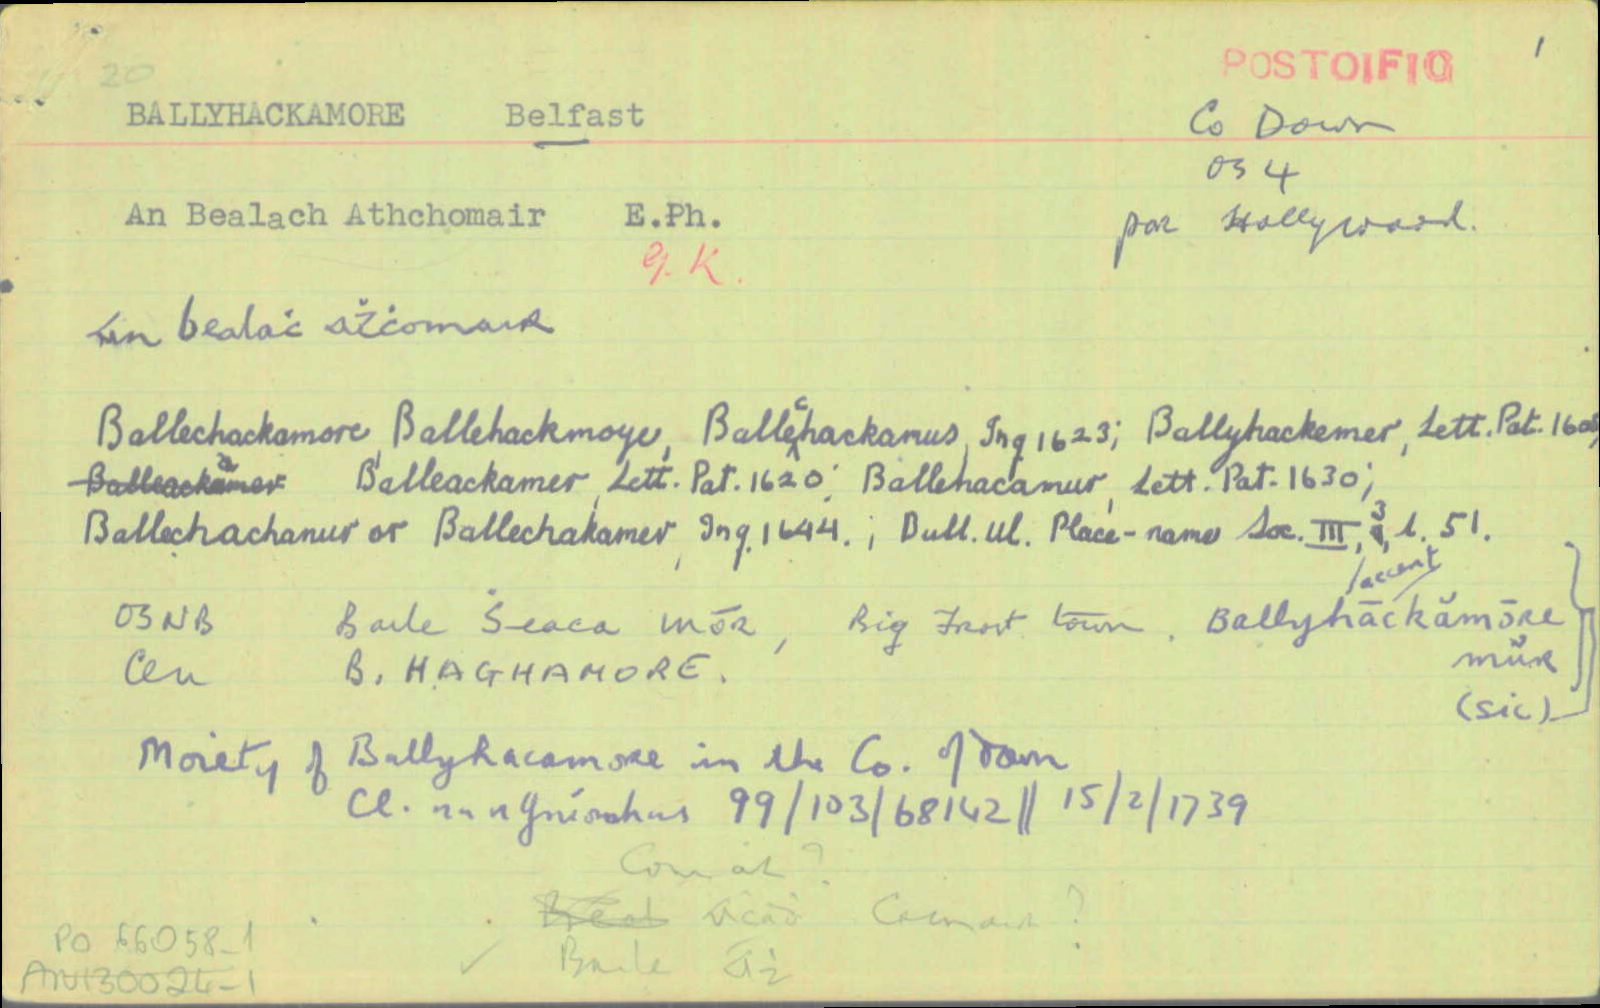 20
POSTOIFIG 1
BALLYHACKAMORE Belfast
Co Down
OS 4
An Bealach Athchomair E.Ph.
par Hollywood.
G. K.
An bealaċ aṫċomair
Ballechackamore, Ballehackmoye, Ballechackamus, Inq 1623; Ballyhackemer, Lett. Pat.
Balleackamer Balleackamer, Lett. Pat. 1620; Ballehacamur, Lett. Pat. 1630;
Ballechachanur or Ballechakamer, Inq. 1644.; Bull. Ul. Place-name Soc. III, 3, l. 51.
accent
OSNB Baile Seaca mór, Big Frost town. Ballyhāckămōre
Cen B. HAGHAMORE. mŭr
(sic)
Moiety of Ballyhacamore in the Co. of Down
Cl. na nGníomhas 99/103/68142 || 15/2/1739
?
Baile
PO 66058-1
AN130024-1